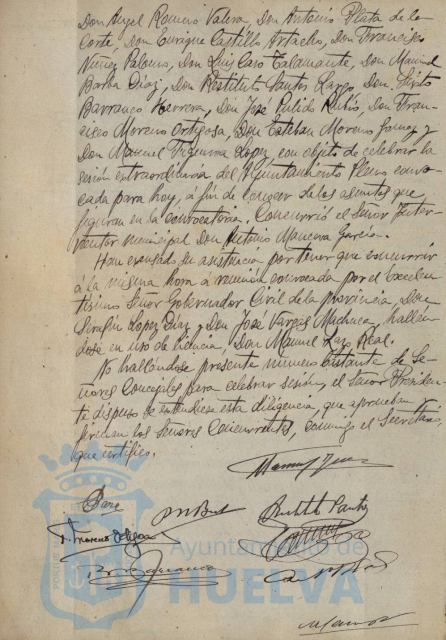 Don Angel Romero Valera, Don Antonio Plata de la
Corte, Don Enrique Castillo Don Francisco
Don Luis Caro Don Manuel
Barba Díaz, Don Restituto Santos Don Sixto
Barranco Herrera, Don José Pulido Rubio, Don Fran-
cisco Moreno Ortigosa, Don Esteban Moreno y
Don Manuel Figueroa Lopez, con objeto de celebrar la
sesión extraordinaria del Ayuntamiento Pleno convo-
cada para hoy, a fin de conocer de los asuntos que
figuran en la convocatoria. Concurrió el Señor Inter-
ventor municipal Don Antonio Mancera García.
Han excusado su asistencia por tener que concurrir
á la misma hora a reunión convocada por el Excelen-
tísimo Señor Gobernador Civil de la provincia, Don
Serafín Lopez Díaz y Don José Vargas Machuca, hallán-
dose en uso de licencia, Don Manuel Real.
No hallándose presente número bastante de Se-
ñores Concejales para celebrar sesión, el Señor Presiden-
te dispuso se extendiese esta diligencia, que aprueban y
firman los Señores Concurrentes, conmigo el Secretario,
que certifico.
Ayuntamiento de
HUELVA